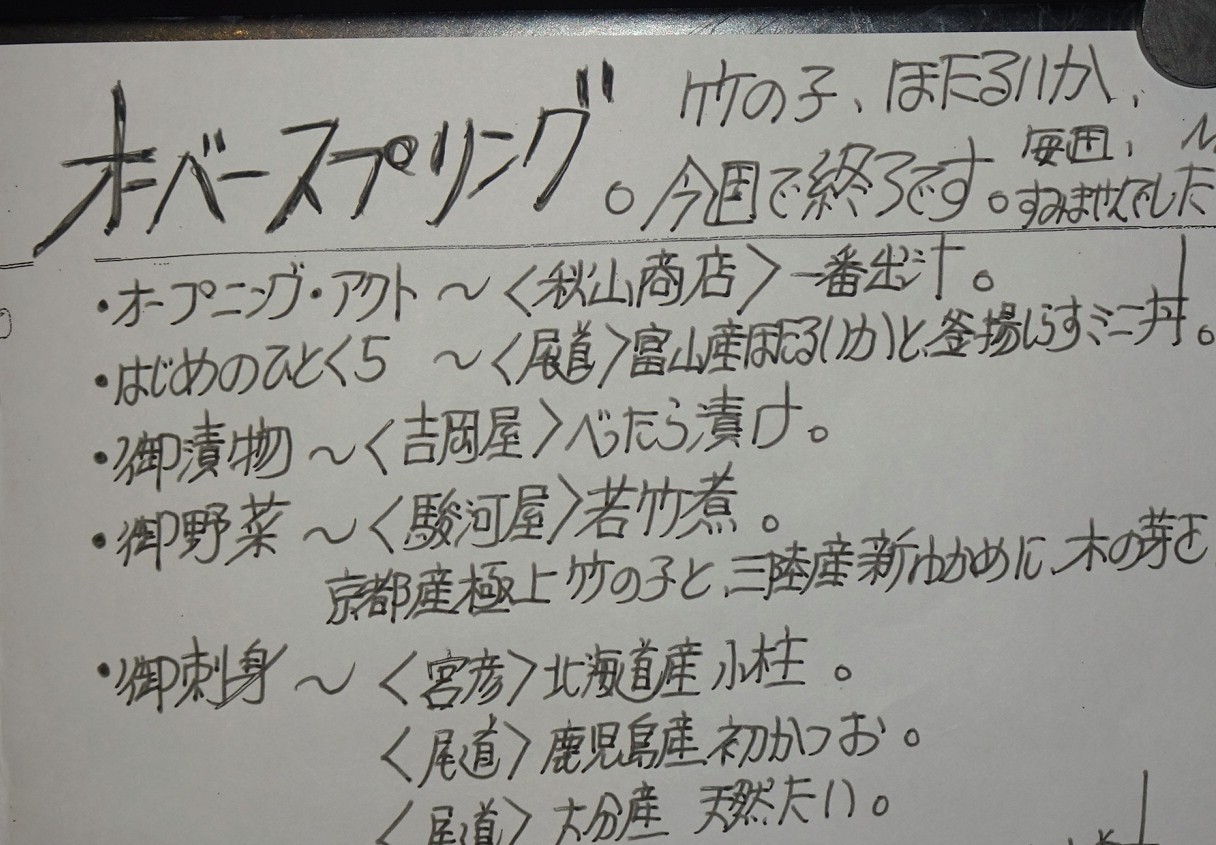 オバースプリング。
竹の子、ほたるいか、
今週で終了です。
毎週、
すみませんでした
・オープニング・アクト 〜〈秋山商店〉一番出汁。
・はじめのひとくち 〜〈尾道〉富山産ほたるいかと、釜揚しらすミニ丼。
・御漬物 〜〈吉岡屋〉べったら漬け。
・御野菜 〜〈駿河屋〉若竹煮。
京都産極上竹の子と、三陸産新わかめに、木の芽を
・御刺身 〜〈宮彦〉北海道産小柱。
〈尾道〉鹿児島産初かつお。
〈尾道〉大分産 天然たい。